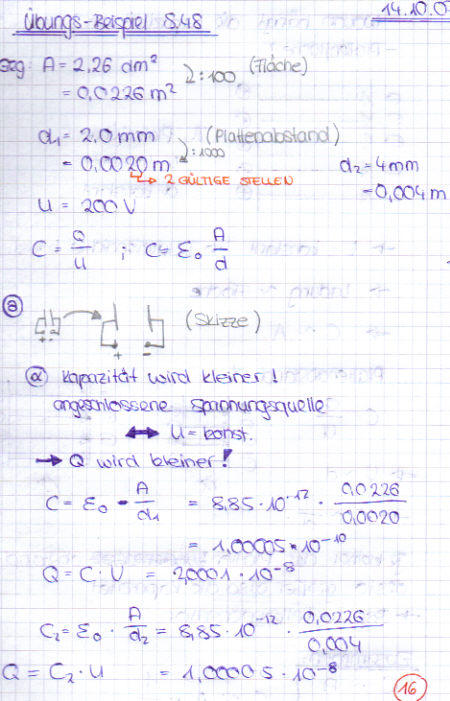 14.10.0
Übungs-Beispiel 8.48
geg: A = 2,26 dm² ⤸ : 100 (Fläche)
= 0,0226 m²
d₁ = 2,0 mm (Plattenabstand)
: 1000
= 0,0020 m d₂ = 4 mm
↳ 2 GÜLTIGE STELLEN = 0,004 m
U = 200 V
C = Q/U ; C = ε₀ A/d
ⓐ (Skizze)
+ - + -
ⓐ Kapazität wird kleiner!
angeschlossene Spannungsquelle
↔ U = konst.
→ Q wird kleiner!
C = ε₀ · A/d₁ = 8,85 · 10⁻¹² · 0,0226/0,0020
= 1,00005 · 10⁻¹⁰
Q = C · U = 2,0001 · 10⁻⁸
C₂ = ε₀ · A/d₂ = 8,85 · 10⁻¹² · 0,0226/0,004
Q = C₂ · U = 1,00005 · 10⁻⁸
16